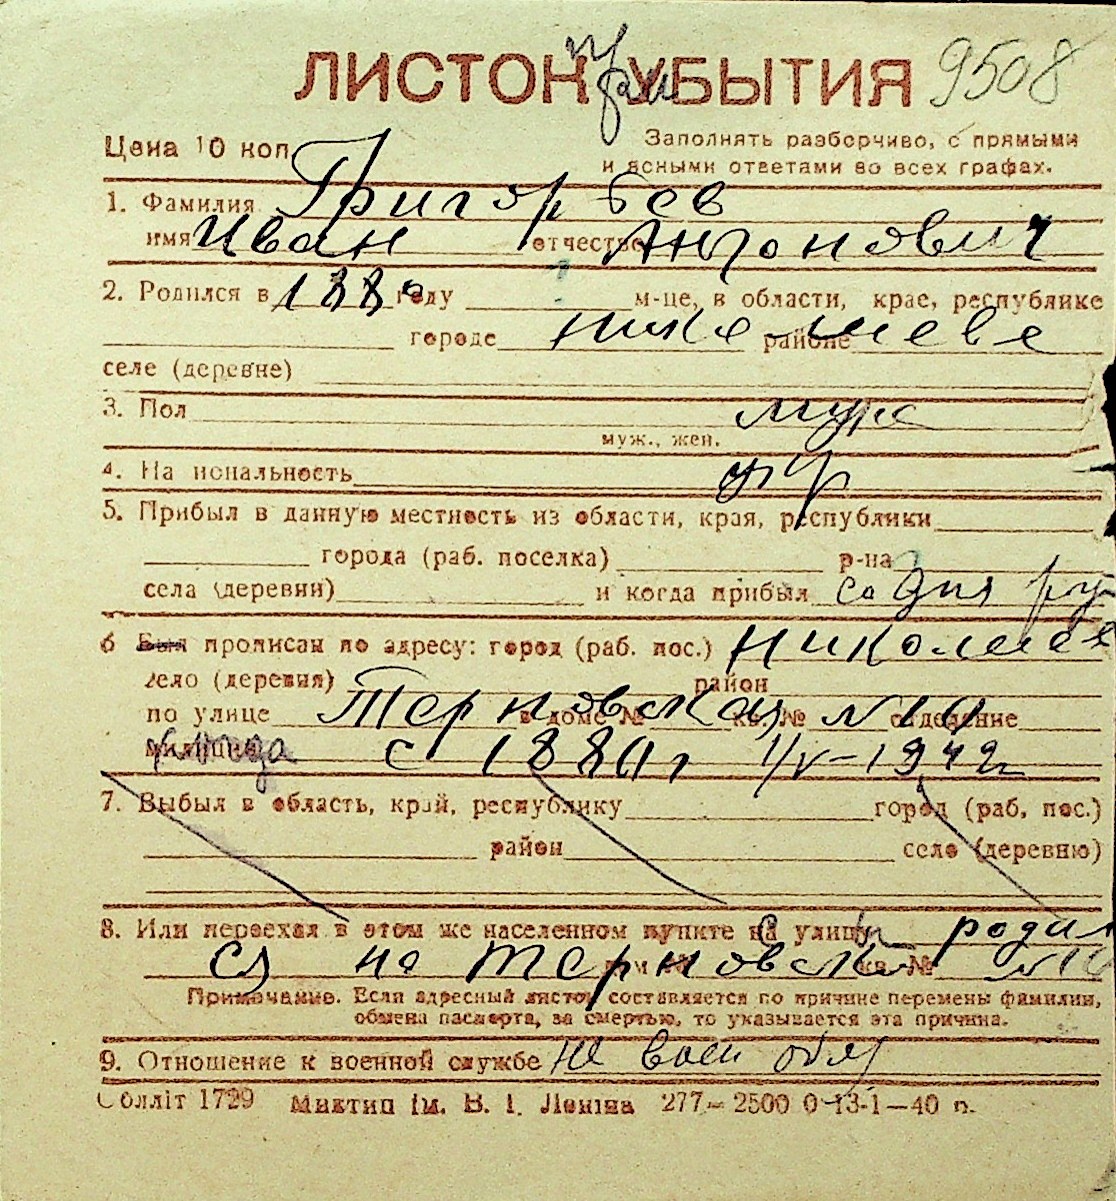 ЛИСТОК УБЫТИЯ 9508
при
Цена 10 коп.
Заполнять разборчиво, с прямыми
и ясными ответами во всех графах.
1. Фамилия Григорьев
имя Иван отчество Антонович
2. Родился в 1880 году ? м-це, в области, крае, республике
городе Николаеве районе
селе (деревне)
3. Пол муж
муж., жен.
4. Национальность укр
5. Прибыл в данную местность из области, края, республики
города (раб. поселка) р-на
села (деревни) и когда прибыл со дня
6 Был прописан по адресу: город (раб. пос.) Николаев
село (деревня) район
по улице Терновская в доме № кв. № №10 отделение
милиции с 1880 г 1/V-1942
7. Выбыл в область, край, республику город (раб, пос.)
район село (деревню)
8. Или переехал в этом же населенном пункте на улицу родил
ся на Терновск дом № кв. № №10
Примечание. Если адресный листок составляется по причине перемены фамилии,
обмена паспорта, за смертью, то указывается эта причина.
9. Отношение к военной службе не воен обяз
Облліт 1729 Миктип ім. В. І. Леніна 277–2500 0-13-1—40 р.